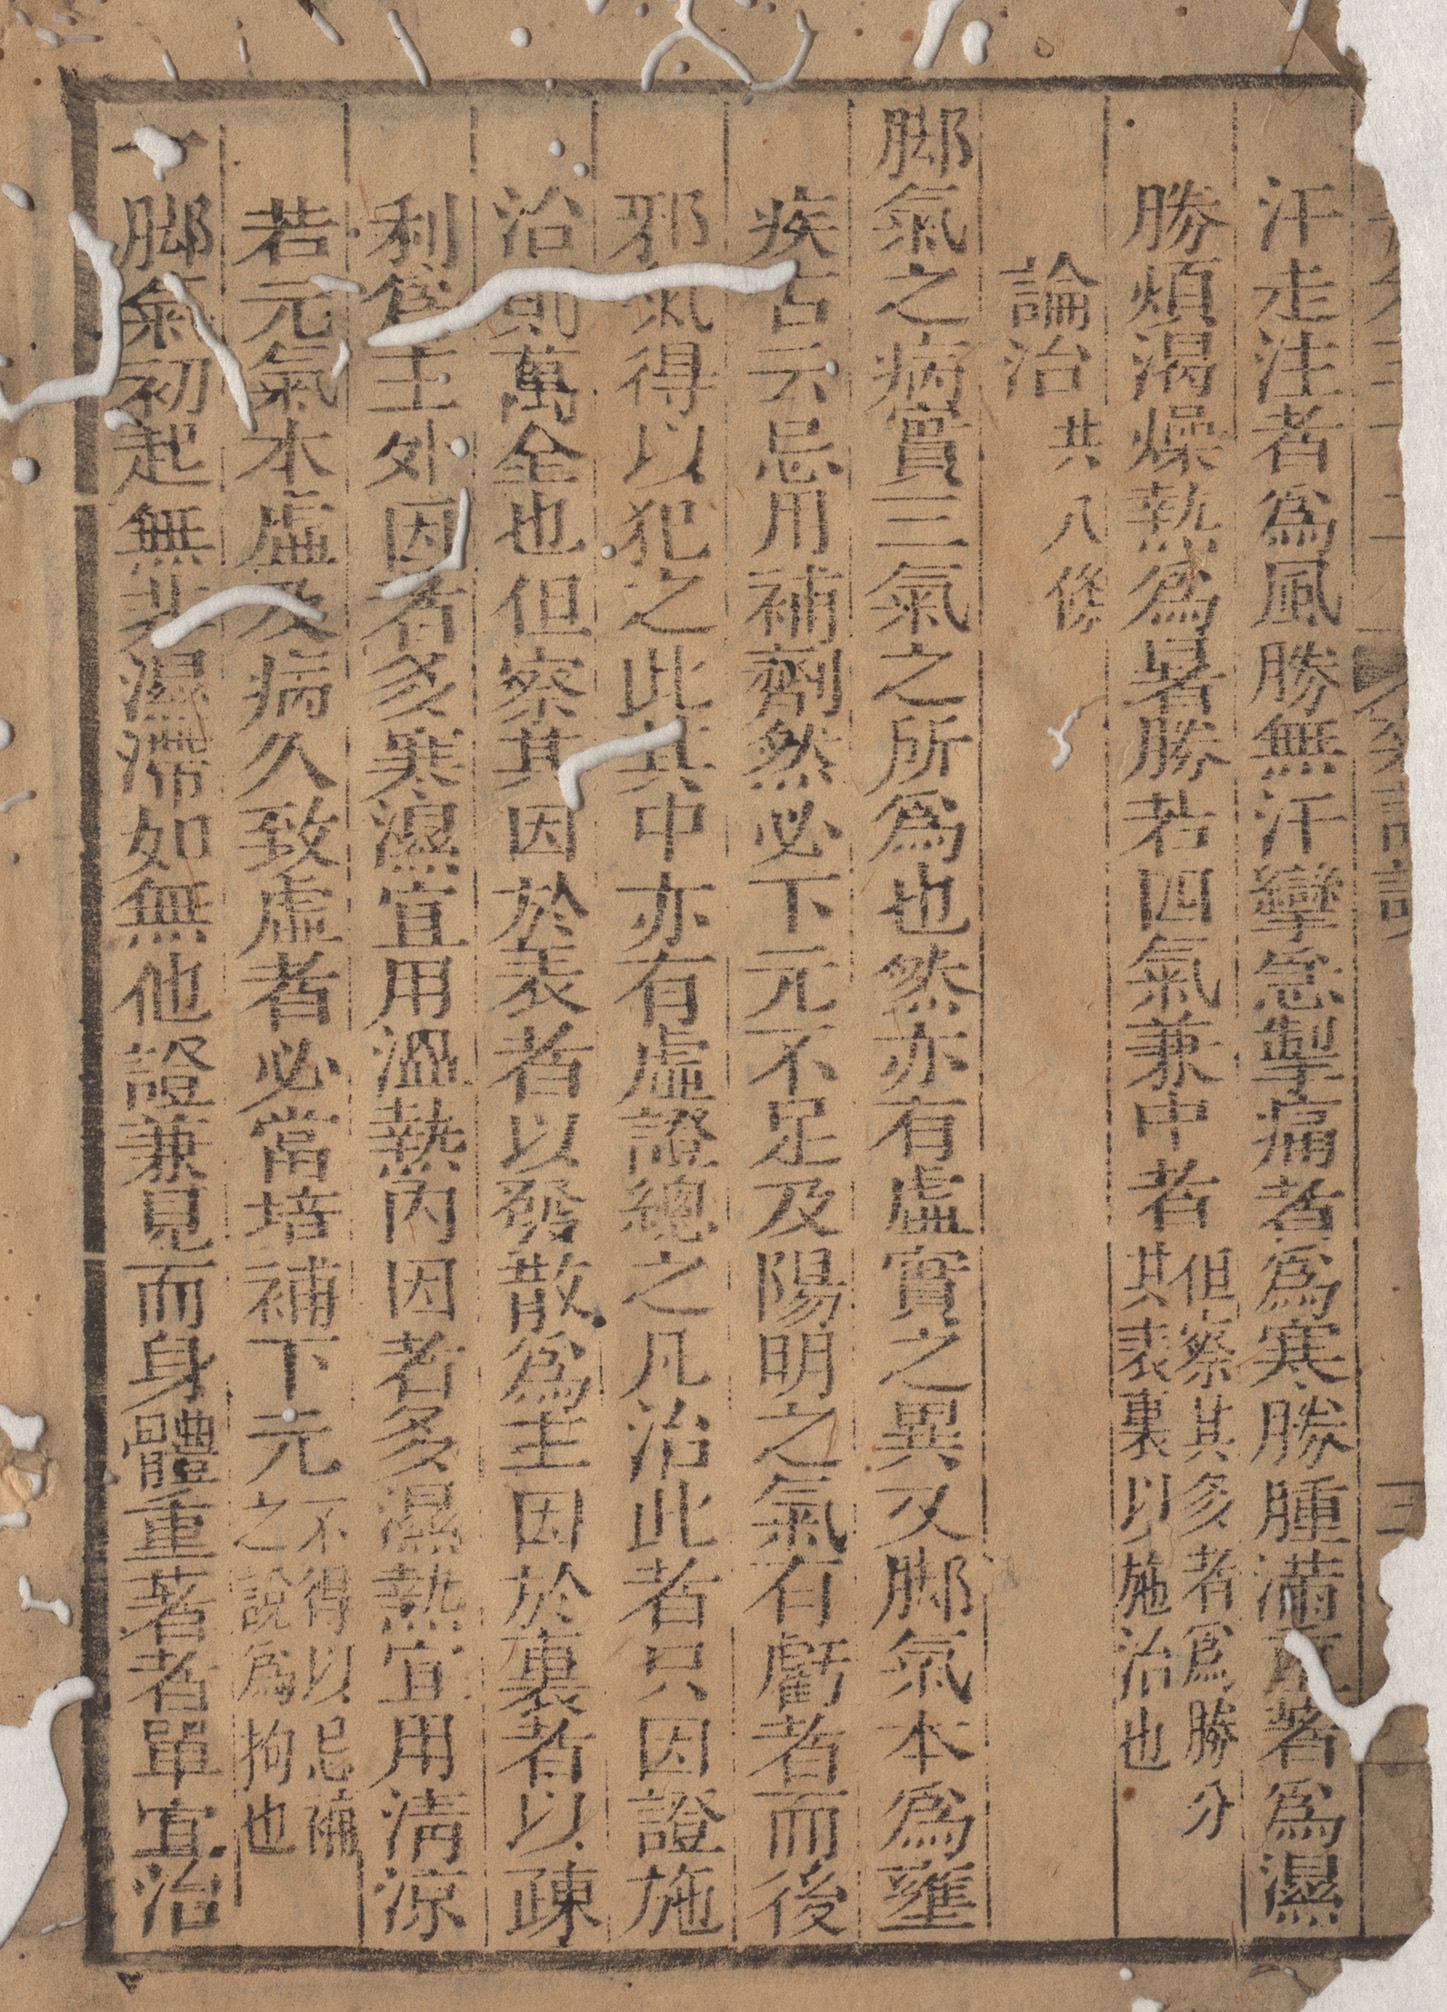 汗走注者爲風勝無汗攣急掣痛者爲寒勝腫滿重著者爲濕
勝煩渴燥熱爲暑勝若四氣兼中者但察其多者爲勝分其表裏以施治也
論治共八條
脚氣之病實三氣之所爲也然亦有虛實之異又脚氣本爲壅
疾古云忌用補劑然必下元不足及陽明之氣有虧者而後
邪氣得以犯之此其中亦有虛證總之凡治此者只因證施
治則萬全也但察其因於表者以發散爲主因於裏者以疎
利爲主外因者多寒濕宜用溫熱內因者多濕熱宜用清涼
若元氣本虛及病久致虛者必當培補下元不得以忌補之說爲拘也
一脚氣初起無非濕滯如無他證兼見而身體重著者單宜治